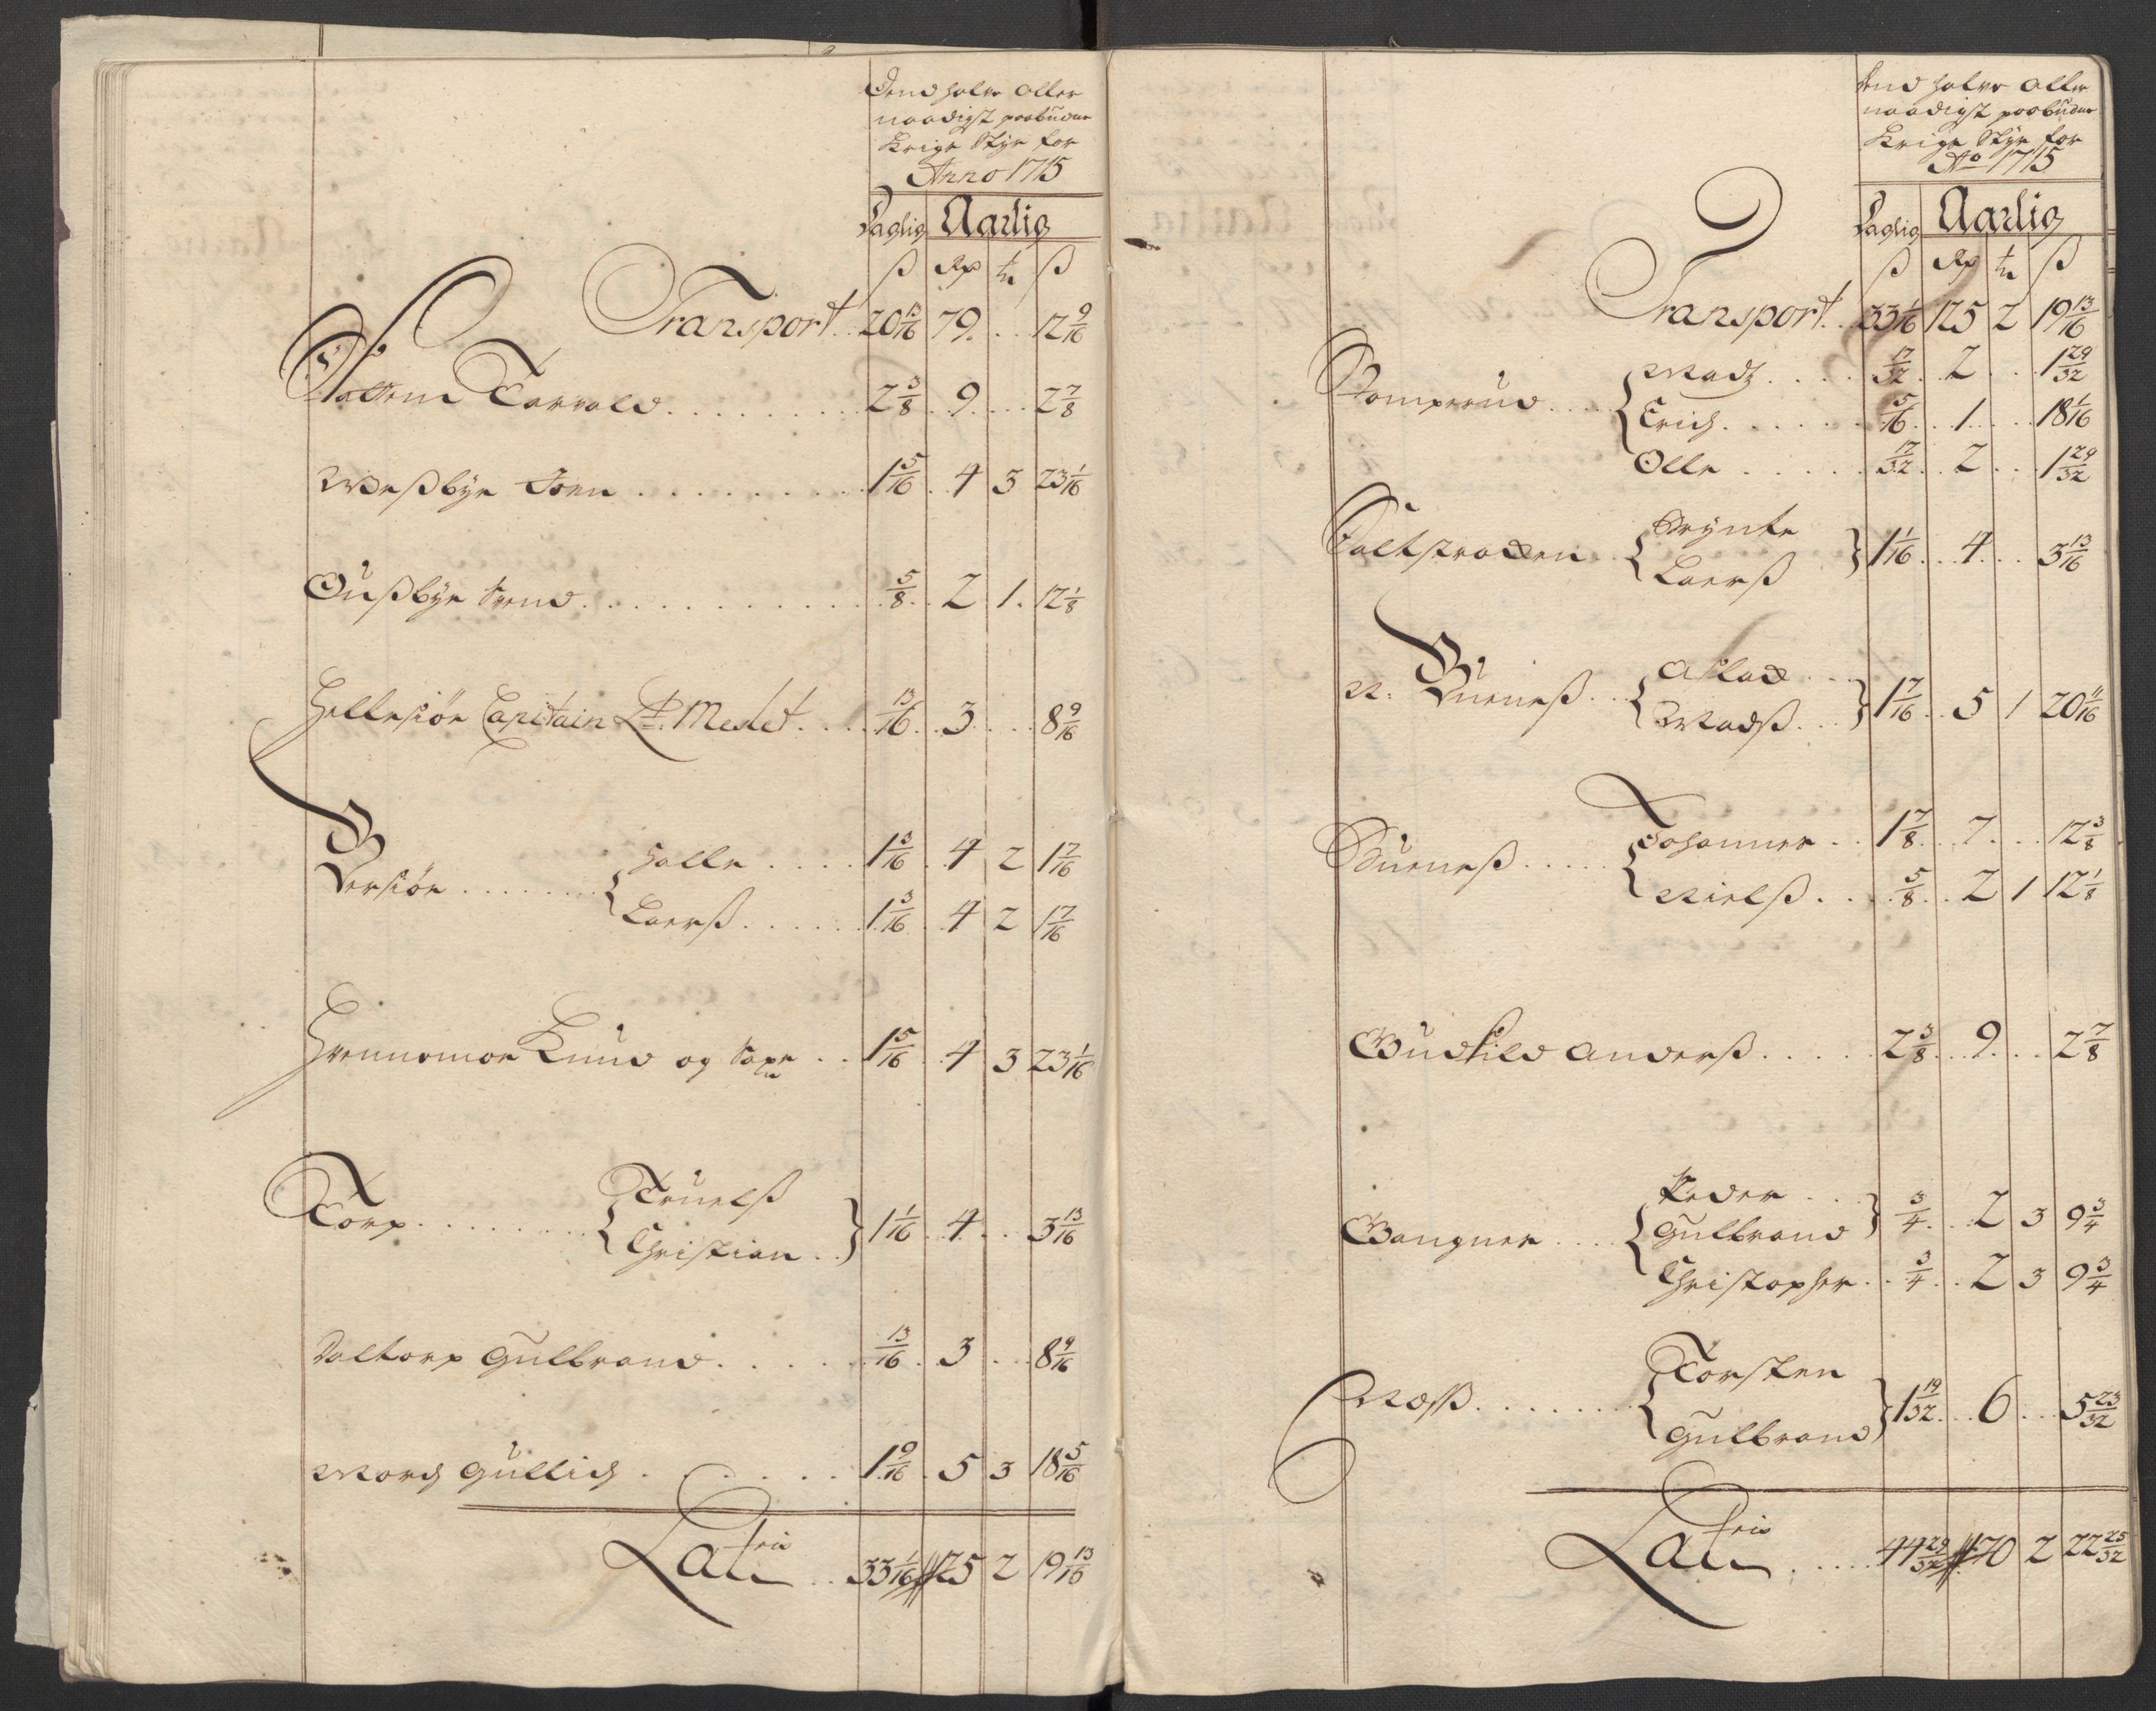 Dend halve aller
naadigst paabudne
Krigs Styr for
Anno 1715
Daglig Aarlig
ß Rd ort ß
Transport .. 20 13/16 79 .. 12 9/16
Torvald .. 2 3/8 9 .. 2 7/8
Weßbye Joen .. 1 5/16 4 3 23 1/16
Oußbye Svend .. 5/8 2 1 12 1/8
Hellesiøe Capitain Lt. Meslet .. 13/16 3 .. 8 9/16
Bersiøe .. { Halle .. 1 3/16 4 2 1 7/16
Laerß .. 1 3/16 4 2 1 7/16
Knud og .. 1 5/16 4 3 23 1/16
Torp .. { Truelß
Christian .. } 1 1/16 4 .. 3 13/16
Daltorp Gulbrand .. 13/16 3 .. 8 9/16
Morch Gullich .. 1 9/16 5 3 18 5/16
Lateris .. 33 1/16 125 2 19 13/16
Dend halve aller
naadigst paabudne
Krigs Styr for
Ao 1715
Daglig Aarlig
ß Rd ort ß
Transport .. 33 1/16 125 2 19 13/16
Romperud .. { Madz .. 17/32 2 .. 1 29/32
Erich .. 5/16 1 .. 18 1/16
Olle .. 17/32 2 .. 1 29/32
{ Brynte
Laerß } 1 1/16 4 .. 3 13/16
N: Burneß .. { Aslach ..
Madß .. } 1 7/16 5 1 20 11/16
Burneß .. { Johannes .. 1 7/8 7 .. 12 3/8
Nielß .. 5/8 2 1 12 1/8
Gudsild Anderß .. 2 3/8 9 .. 2 7/8
Gangnes .. { Peder ..
Gulbrand } 3/4 2 3 9 3/4
Christopher .. 3/4 2 3 9 3/4
Næss .. { Torsten
Gulbrand } 1 19/32 6 .. 5 23/32
Lateris .. 44 29/32 170 2 22 25/32